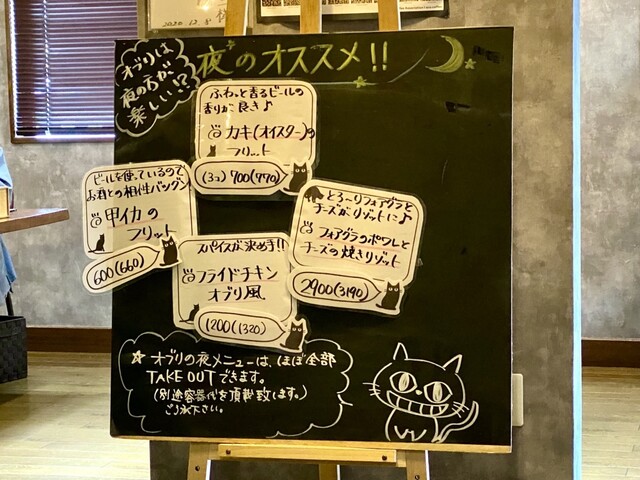 2020.12.8
オブリは
夜の方が
楽しい!?
夜のオススメ!!
ふわっと香るビールの
香りが良き♪
カキ(オイスター)の
フリット
(3コ) 700(770)
ビールを使っているので
お酒との相性バツグン
甲イカの
フリット
600(660)
スパイスが決め手!!
フライドチキン
オブリ風
1200(1320)
とろ〜りフォアグラと
チーズがリゾットに♪
フォアグラのポワレと
チーズの焼きリゾット
2900(3190)
★ オブリの夜メニューは、ほぼ全部
TAKE OUTできます。
(別途容器代を頂戴致します。)
ご了承下さい。